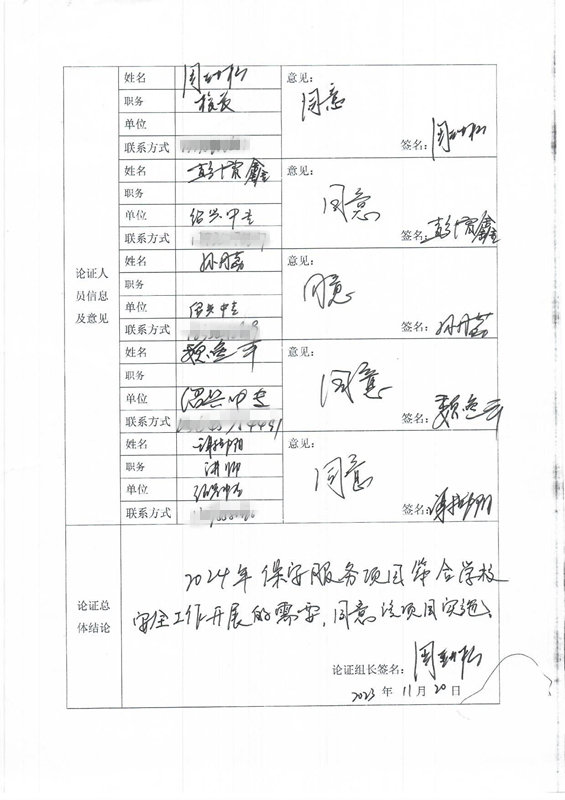 姓名
意见:
同意
职务 校长
单位
联系方式
签名:
姓名
意见:
同意
职务
单位 绍兴中专
联系方式
签名:
论证人
员信息
及意见
姓名 孙丹荔
意见:
同意
职务
单位 绍兴中专
联系方式
签名: 孙丹荔
姓名
意见:
同意
职务
单位 绍兴中专
联系方式
签名:
姓名
意见:
同意
职务 讲师
单位 绍兴中专
联系方式
签名:
论证总
体结论
2024年保安服务项目符合学校
安全工作开展的需要,同意该项目实施。
论证组长签名:
2023年11月20日